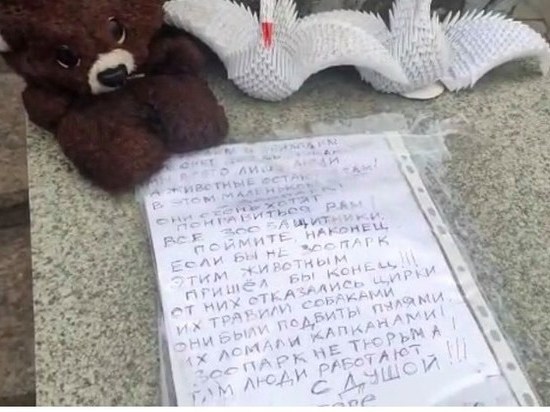 ЛЮДИ
А ЖИВОТНЫЕ ОСТАЛ
В ЭТОМ МАЛЕНЬКОМ
ОНИ ОЧЕНЬ ХОТЯТ
ПОНРАВИТЬСЯ ВАМ!
ВСЕ ЗООЗАЩИТНИКИ,
ПОЙМИТЕ НАКОНЕЦ
ЕСЛИ БЫ НЕ ЗООПАРК
ЭТИМ ЖИВОТНЫМ
ПРИШЁЛ БЫ КОНЕЦ!!!
ОТ НИХ ОТКАЗАЛИСЬ ЦИРКИ
ИХ ТРАВИЛИ СОБАКАМИ
ОНИ БЫЛИ ПОДБИТЫ ПУЛЯМИ,
ИХ ЛОМАЛИ КАПКАНАМИ!
ЗООПАРК НЕ ТЮРЬМА!
ТАМ ЛЮДИ РАБОТАЮТ
С ДУШОЙ!!!